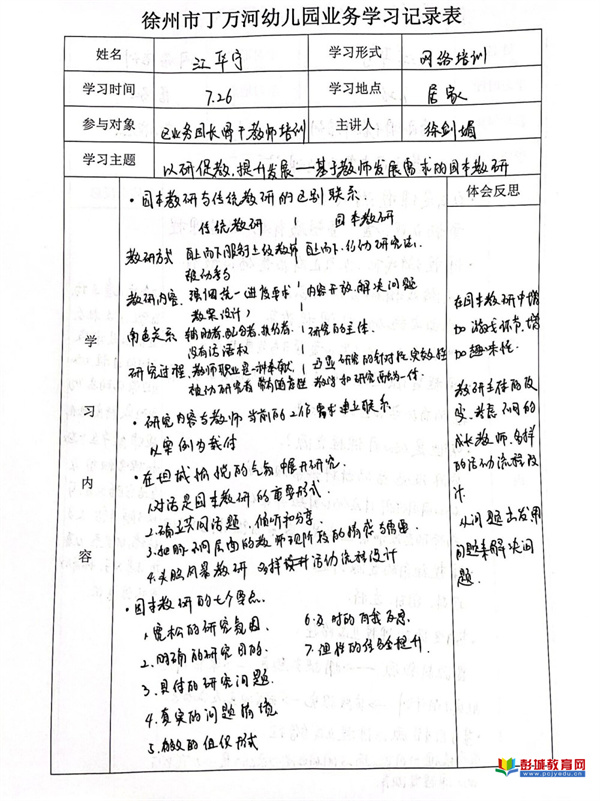 徐州市丁万河幼儿园业务学习记录表
姓名 江华宁 学习形式 网络培训
学习时间 7.26 学习地点 居家
参与对象 区业务园长骨干教师培训 主讲人 徐剑媚
学习主题 以研促教,提升发展——基于教师发展需求的园本教研
学习内容
体会反思
·园本教研与传统教研的区别联系.
传统教研 园本教研
教研方式 自上而下服从上级教师 自上而下、行动研究法.
被动参与
教研内容. 强调统一进度要求 内容开放.解决问题
教案设计;
角色关系 辅助者.配合者.执行者. 研究的主体.
没有话语权
研究过程. 教师职业是一种奉献 凸显研究的针对性实效性
被动研究者 教师和研究融为一体.
·研究内容与教师当前的工作需求建立联系
以案例为载体
·在坦诚愉悦的气氛中展开研究.
1.对话是园本教研的重要形式.
2.确立共同话题.倾听和分享.
3.把助不同层面的教师现阶段的情感与需要
4.头脑风暴教研 多样玩活动流程设计
·园本教研的七个要点.
1.宽松的研究氛围.
2.明确的研究目的.
3.具体的研究问题.
4.真实的问题情境
5.有效的组织形式
6.及时的自我反思.
7.理性的经验提升.
在园本教研中增
加游戏环节,增
加趣味性.
教研主体的改
变.关注不同的
成长教师.多样
的活动流程设
计.
从问题出发.用
问题来解决问
题.
彭城教育网
www.pcjyedu.cn